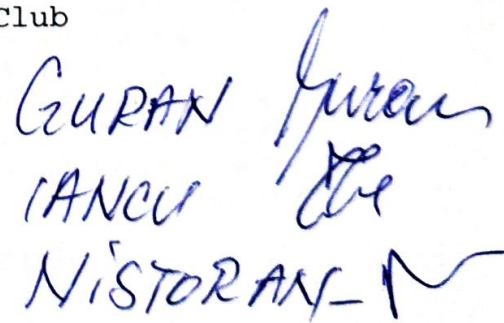 Club
GURAN Guran
IANCU
NiSTORAN-